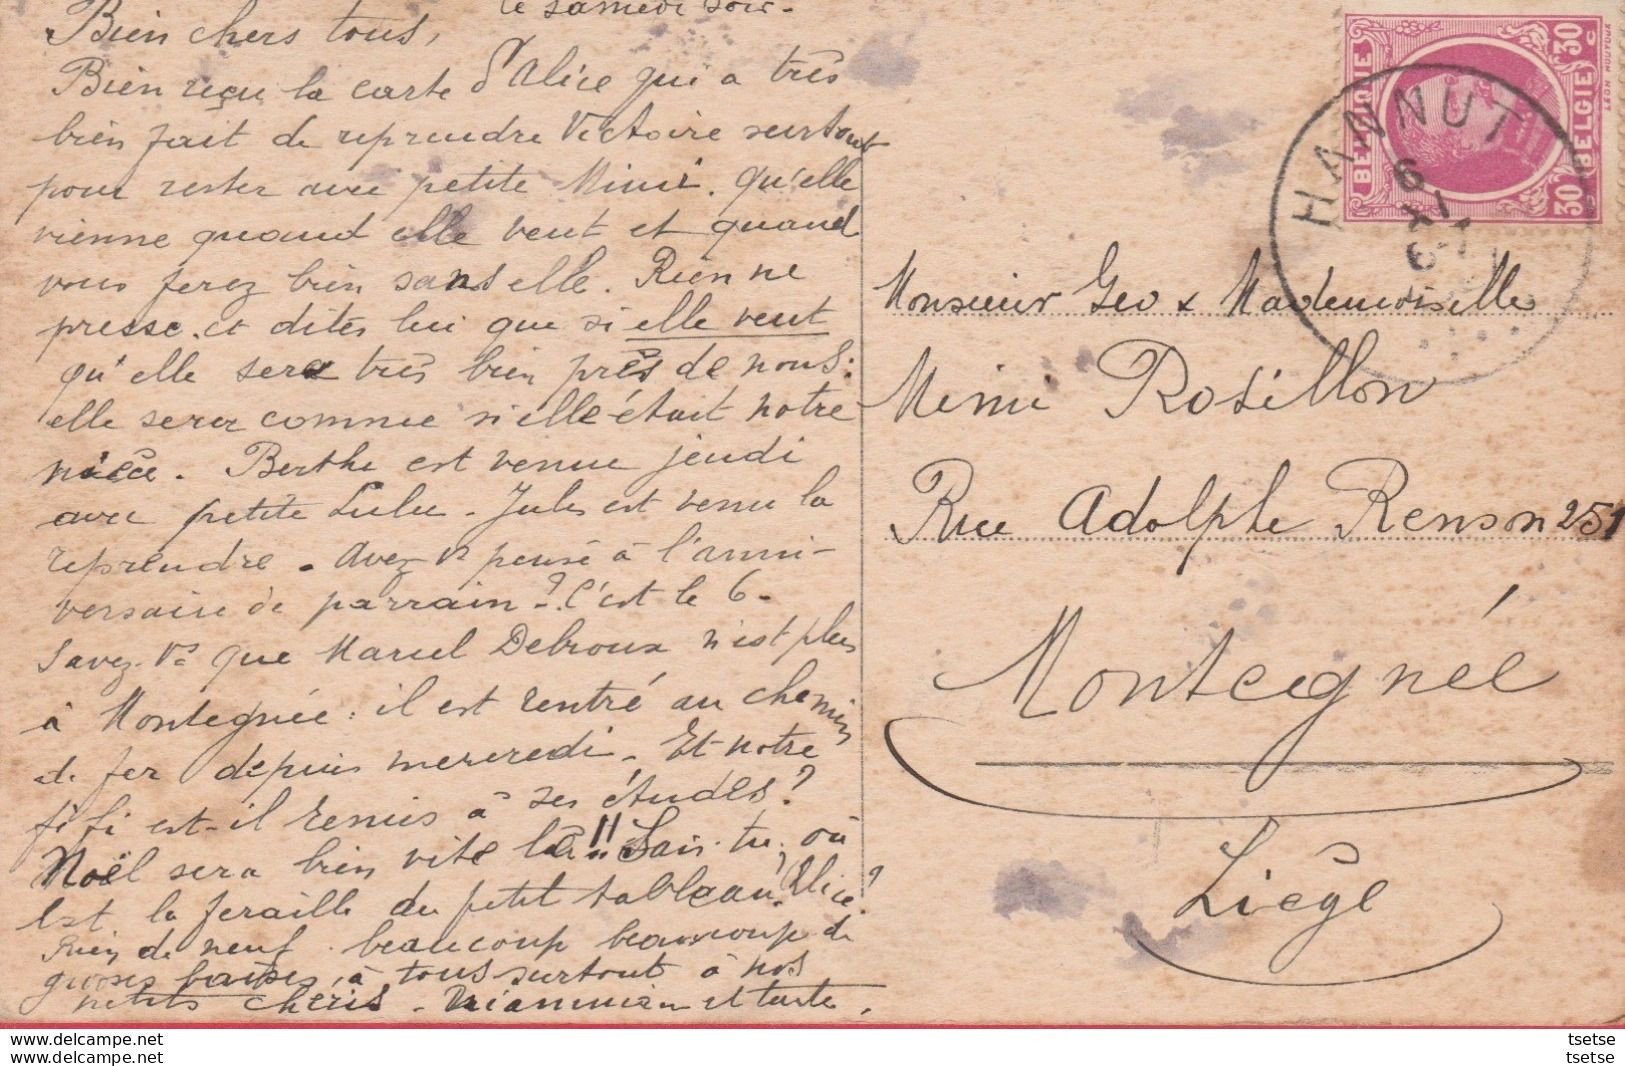 le samedi soir.
Bien chers tous,
Bien reçu la carte d'Alice qui a très
bien fait de reprendre Victoire surtout
pour rester avec petite Mimi. Qu'elle
vienne quand elle veut et quand
vous ferez bien sans elle. Rien ne
presse. et dites lui que si elle veut
qu'elle sera très bien près de nous:
elle sera comme si elle était notre
nièce. Berthe est venue jeudi
avec petite Lulu. Jules est venu la
reprendre. Avez vs pensé à l'anni-
versaire de parrain? C'est le 6.
Savez-vs que Marcel Delroux n'est plus
à Montegnée: il est rentré au chemin
de fer depuis mercredi. Et notre
fifi est-il remis à ses études?
Noël sera bien vite là!! Sais-tu, où
est la feraille du petit tableau, Alice?
Rien de neuf. beaucoup beaucoup de
grosses baises à tous surtout à nos
petits chéris. et tante.
BELGIQUE BELGIE
30 30 c
LEON HOUYOUX
HANNUT
6
XI
Monsieur Geo & Mademoiselle
Mimi Rosillon
Rue Adolphe Renson 251
Montegnée
Liège
tsetse
tsetse
tsetse
tsetse